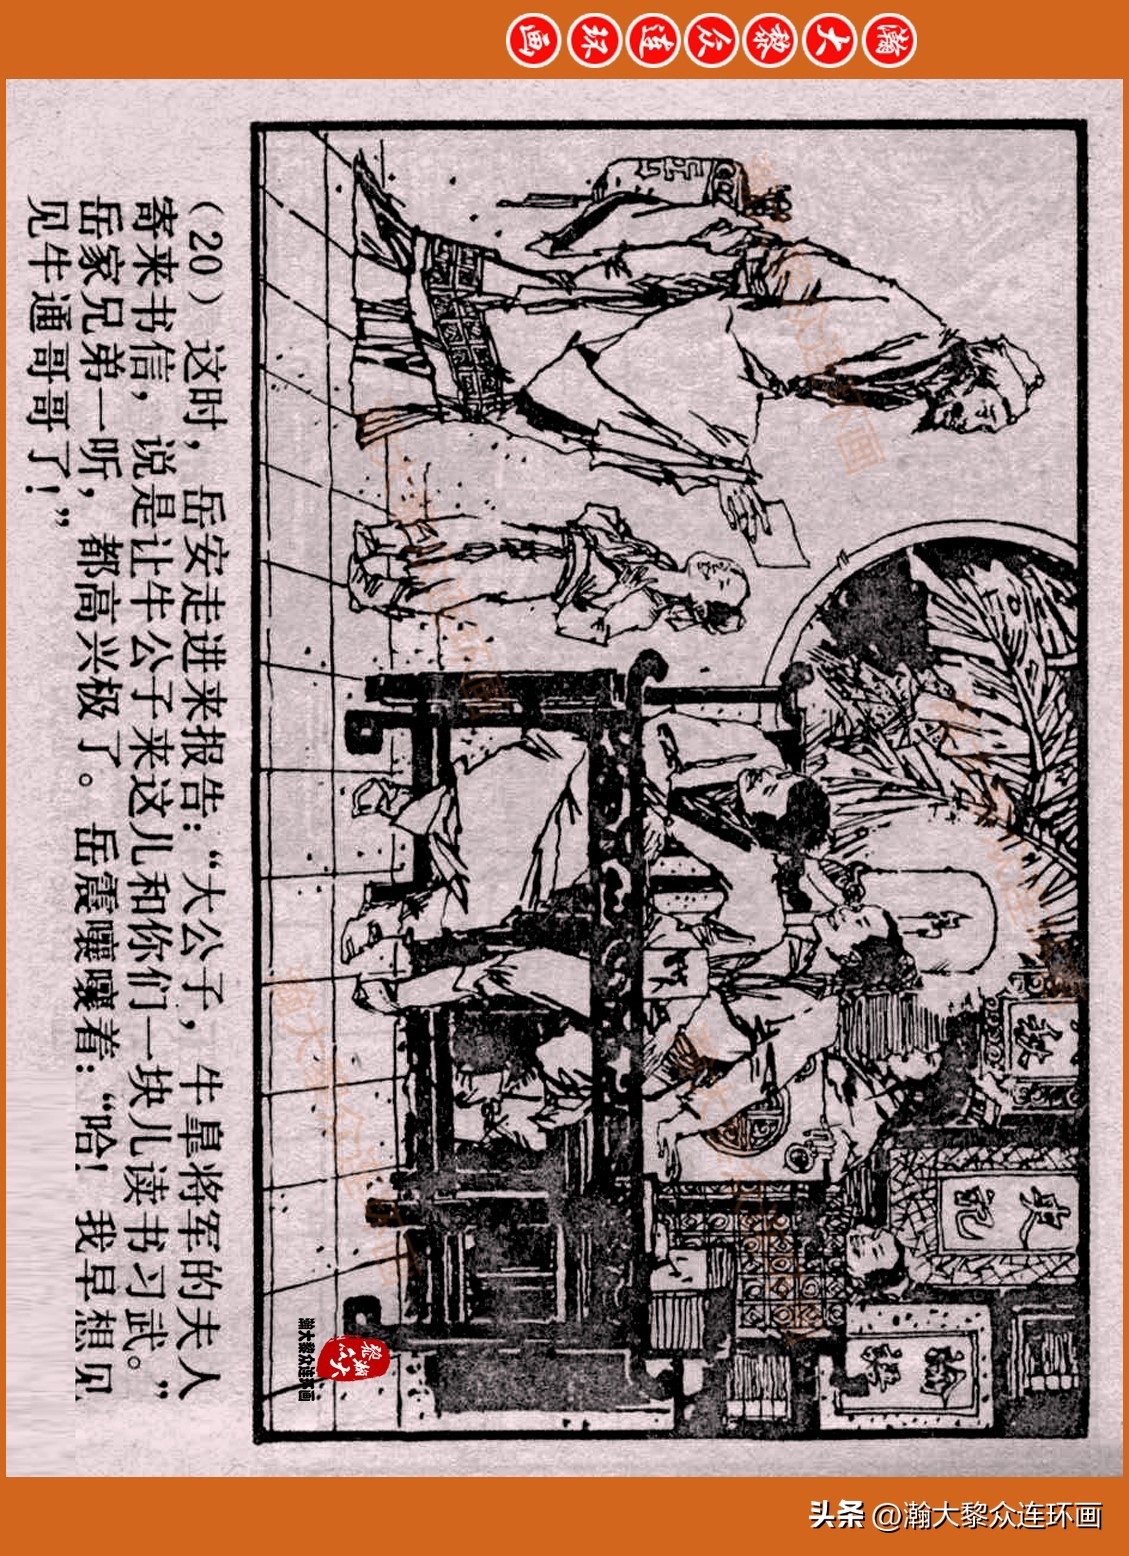 瀚大黎众连环画
（20）这时，岳安走进来报告：“大公子，牛皋将军的夫人
寄来书信，说是让牛公子来这儿和你们一块儿读书习武。”
岳家兄弟一听，都高兴极了。岳震嚷嚷着：“哈！我早想见
见牛通哥哥了！”
瀚大黎众连环画
头条 @瀚大黎众连环画